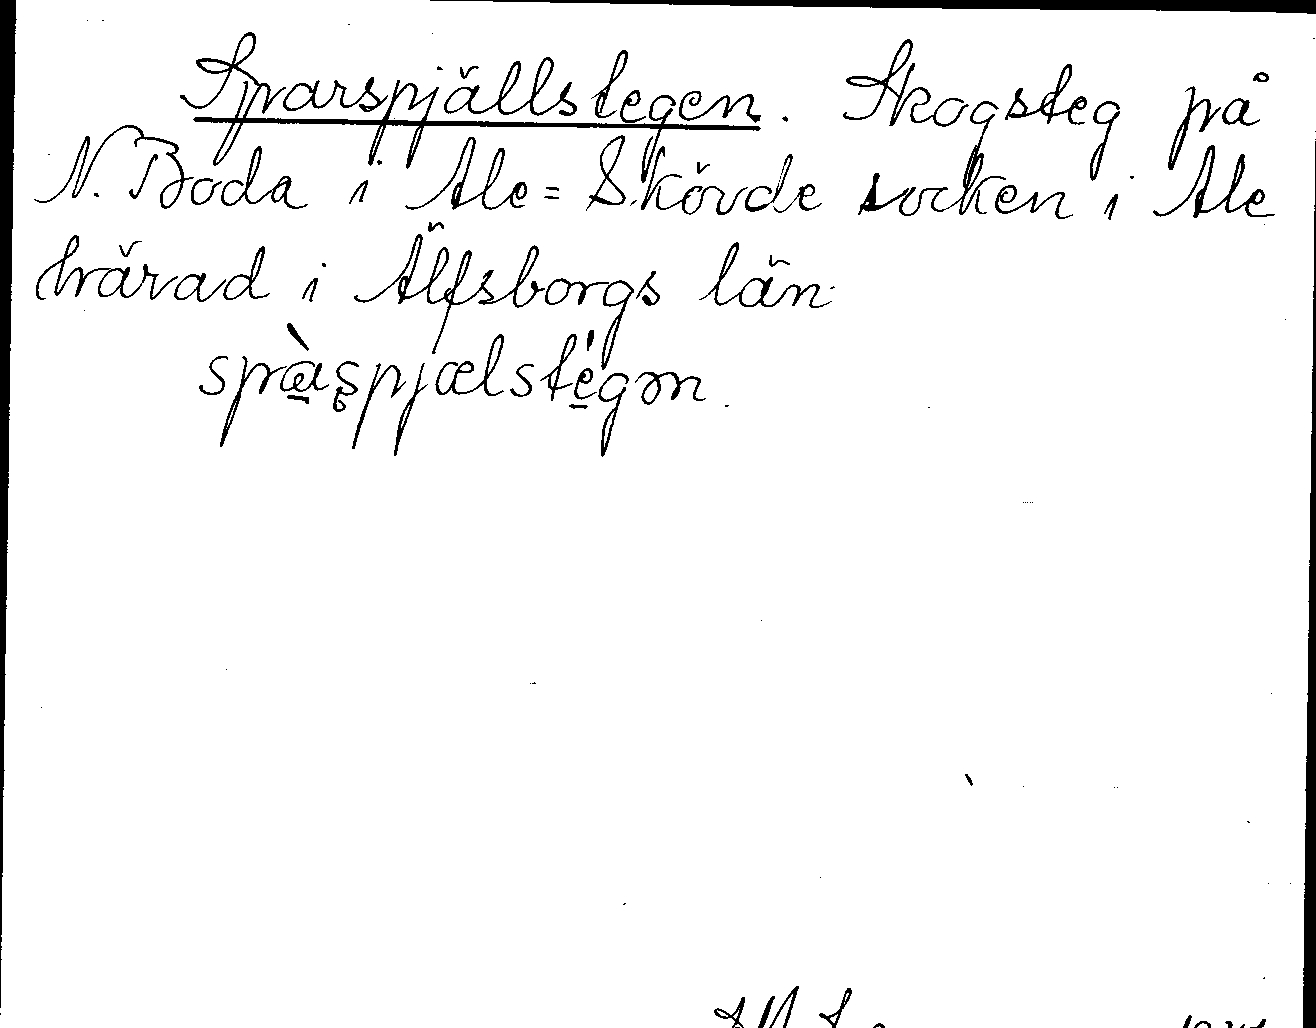 Sparspjällstegen. Skogsteg på
N. Boda i Ale=Skövde socken i Ale
härad i Älfsborgs län
spràʂpjælstégən.